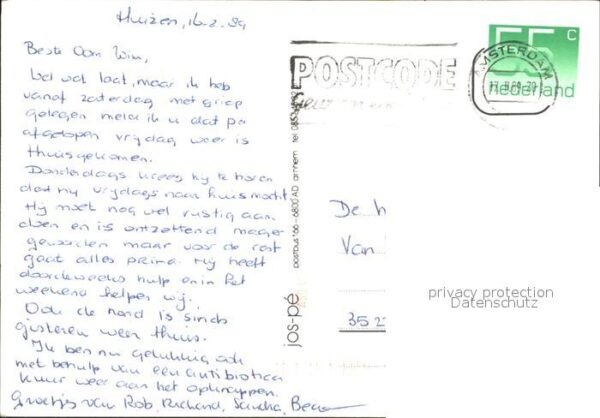 Huizen, 16.2.89
Beste Oom Wim,
Wel wat laat, maar ik heb
vanaf zaterdag met griep
gelegen meld ik u dat pa
afgelopen vrijdag weer is
thuisgekomen.
Donderdags kreeg hij te horen
dat hij vrijdags naar huis mocht
Hij moet nog wel rustig aan
doen en is ontzettend mager
geworden maar voor de rest
gaat alles prima. Hij heeft
doordeweeks hulp en in het
weekend helpen wij.
Ook de hond is sinds
gisteren weer thuis.
Ik ben nu gelukkig ook
met behulp van een antibiotica
kuur weer aan het opknappen.
Groetjes van Rob, Richard, Sandra,
jos-pé
postbus 66 - 6800 AD arnhem tel 085
POSTCODE
AMSTERDAM
55 c
nederland
De H
Van
3527
privacy protection
Datenschutz